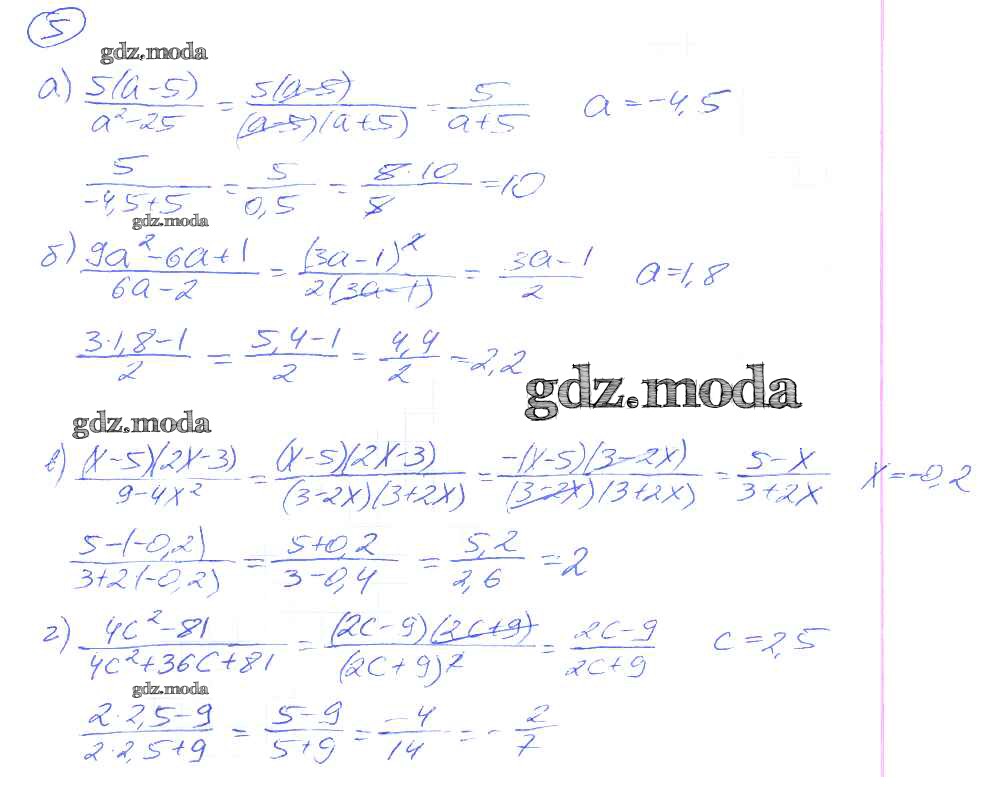 5
gdz.moda
а) 5(a-5)/(a²-25) = 5(a-5)/((a-5)(a+5)) = 5/(a+5) a=-4,5
5/(-4,5+5) = 5/0,5 = 5·10/5 = 10
gdz.moda
б) (9a²-6a+1)/(6a-2) = (3a-1)²/(2(3a-1)) = (3a-1)/2 a=1,8
(3·1,8-1)/2 = (5,4-1)/2 = 4,4/2 = 2,2
gdz.moda
gdz.moda
в) (x-5)(2x-3)/(9-4x²) = (x-5)(2x-3)/((3-2x)(3+2x)) = -(x-5)(3-2x)/((3-2x)(3+2x)) = (5-x)/(3+2x) x=-0,2
(5-(-0,2))/(3+2(-0,2)) = (5+0,2)/(3-0,4) = 5,2/2,6 = 2
г) (4c²-81)/(4c²+36c+81) = (2c-9)(2c+9)/(2c+9)² = (2c-9)/(2c+9) c=2,5
gdz.moda
(2·2,5-9)/(2·2,5+9) = (5-9)/(5+9) = -4/14 = -2/7